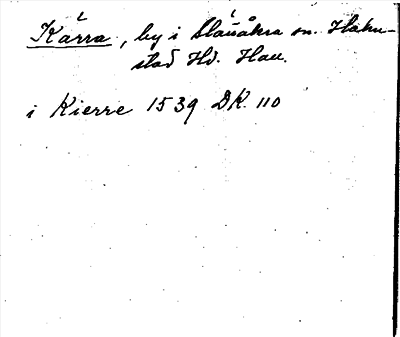 Kärra, by i Slättåkra sn. Halm-
stad Hd. Hall.
i Kierre 1539 DK. 110